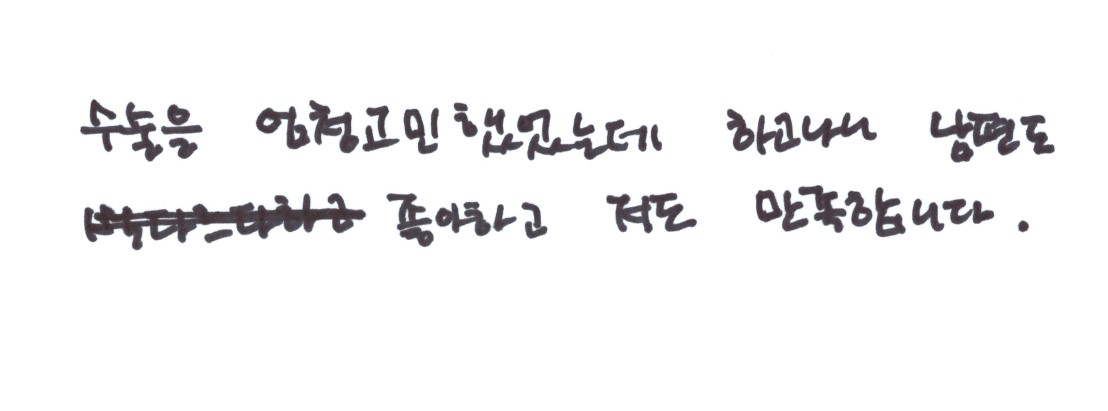 수술을 엄청고민했었는데 하고나니 남편도
좋아하고 저도 만족합니다.